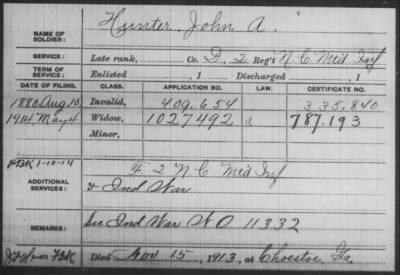 NAME OF SOLDIER: Hunter, John A.
SERVICE: Late rank, Co. D, 2 Reg't N. C. Mt'd Inf
TERM OF SERVICE: Enlisted , 1 Discharged , 1
DATE OF FILING. CLASS. APPLICATION NO. LAW. CERTIFICATE NO.
1880 Aug 10, Invalid, 409.654 335.840
1914 May 4 Widow, 1027492 787.193
Minor,
1-10-14
ADDITIONAL SERVICES: F 2 N C Mt'd Inf
& Ind War
REMARKS: See Ind War W O 11332
Died Nov 15, 1913, at Choestoe, Ga.